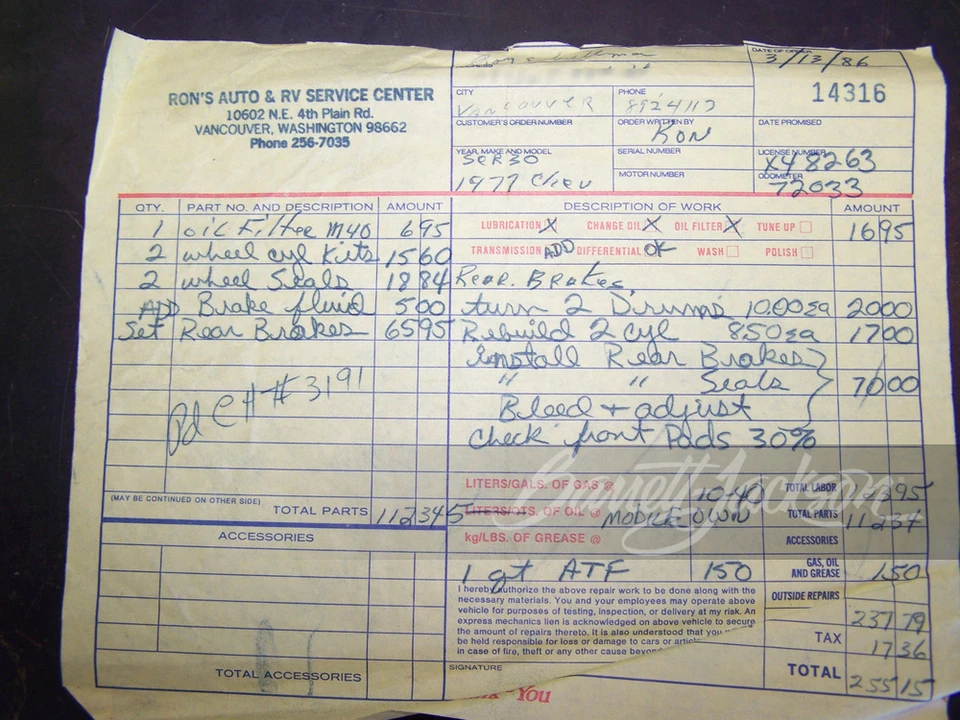 RON'S AUTO & RV SERVICE CENTER
10602 N.E. 4th Plain Rd.
VANCOUVER, WASHINGTON 98662
Phone 256-7035
DATE OF ORDER
3/13/86
14316
CITY
VANCOUVER
PHONE
8924117
CUSTOMER'S ORDER NUMBER
ORDER WRITTEN BY
RON
DATE PROMISED
YEAR, MAKE AND MODEL
SER30
1977 Chev
SERIAL NUMBER
MOTOR NUMBER
LICENSE NUMBER
X48263
ODOMETER
72033
QTY. PART NO. AND DESCRIPTION AMOUNT DESCRIPTION OF WORK AMOUNT
1 oil Filter M40 6 95 LUBRICATION X CHANGE OIL X OIL FILTER X TUNE UP 16 95
2 wheel cyl Kits 15 60 TRANSMISSION ADD DIFFERENTIAL OK WASH POLISH
2 wheel Seals 18 84 Rear. Brakes
ADD Brake fluid 5 00 turn 2 Drums 10.00 ea 20 00
Set Rear Brakes 65 95 Rebuild 2 cyl 8.50 ea 17 00
install Rear Brakes
" " Seals 70 00
Bleed + adjust
Pd CH # 3191
Check front Pads 30%
LITERS/GALS. OF GAS @ 10-40 TOTAL LABOR 123 95
(MAY BE CONTINUED ON OTHER SIDE) TOTAL PARTS 112 34 LITERS/QTS. OF OIL @ MOBILE OWN TOTAL PARTS 112 34
ACCESSORIES kg/LBS. OF GREASE @ ACCESSORIES
1 qt ATF 1 50 GAS, OIL AND GREASE 1 50
I hereby authorize the above repair work to be done along with the
necessary materials. You and your employees may operate above
vehicle for purposes of testing, inspection, or delivery at my risk. An
express mechanics lien is acknowledged on above vehicle to secure
the amount of repairs thereto. It is also understood that you
be held responsible for loss or damage to cars or
in case of fire, theft or any other cause beyond
OUTSIDE REPAIRS
237 79
TAX 17 36
TOTAL ACCESSORIES SIGNATURE TOTAL 255 15
You
Barrett-Jackson